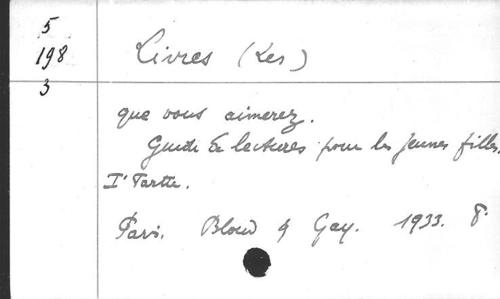 5
198
3
Livres (Les)
que vous aimerez.
Guide de lectures pour les jeunes filles.
I' Partie.
Paris. Bloud & Gay. 1933. 8.